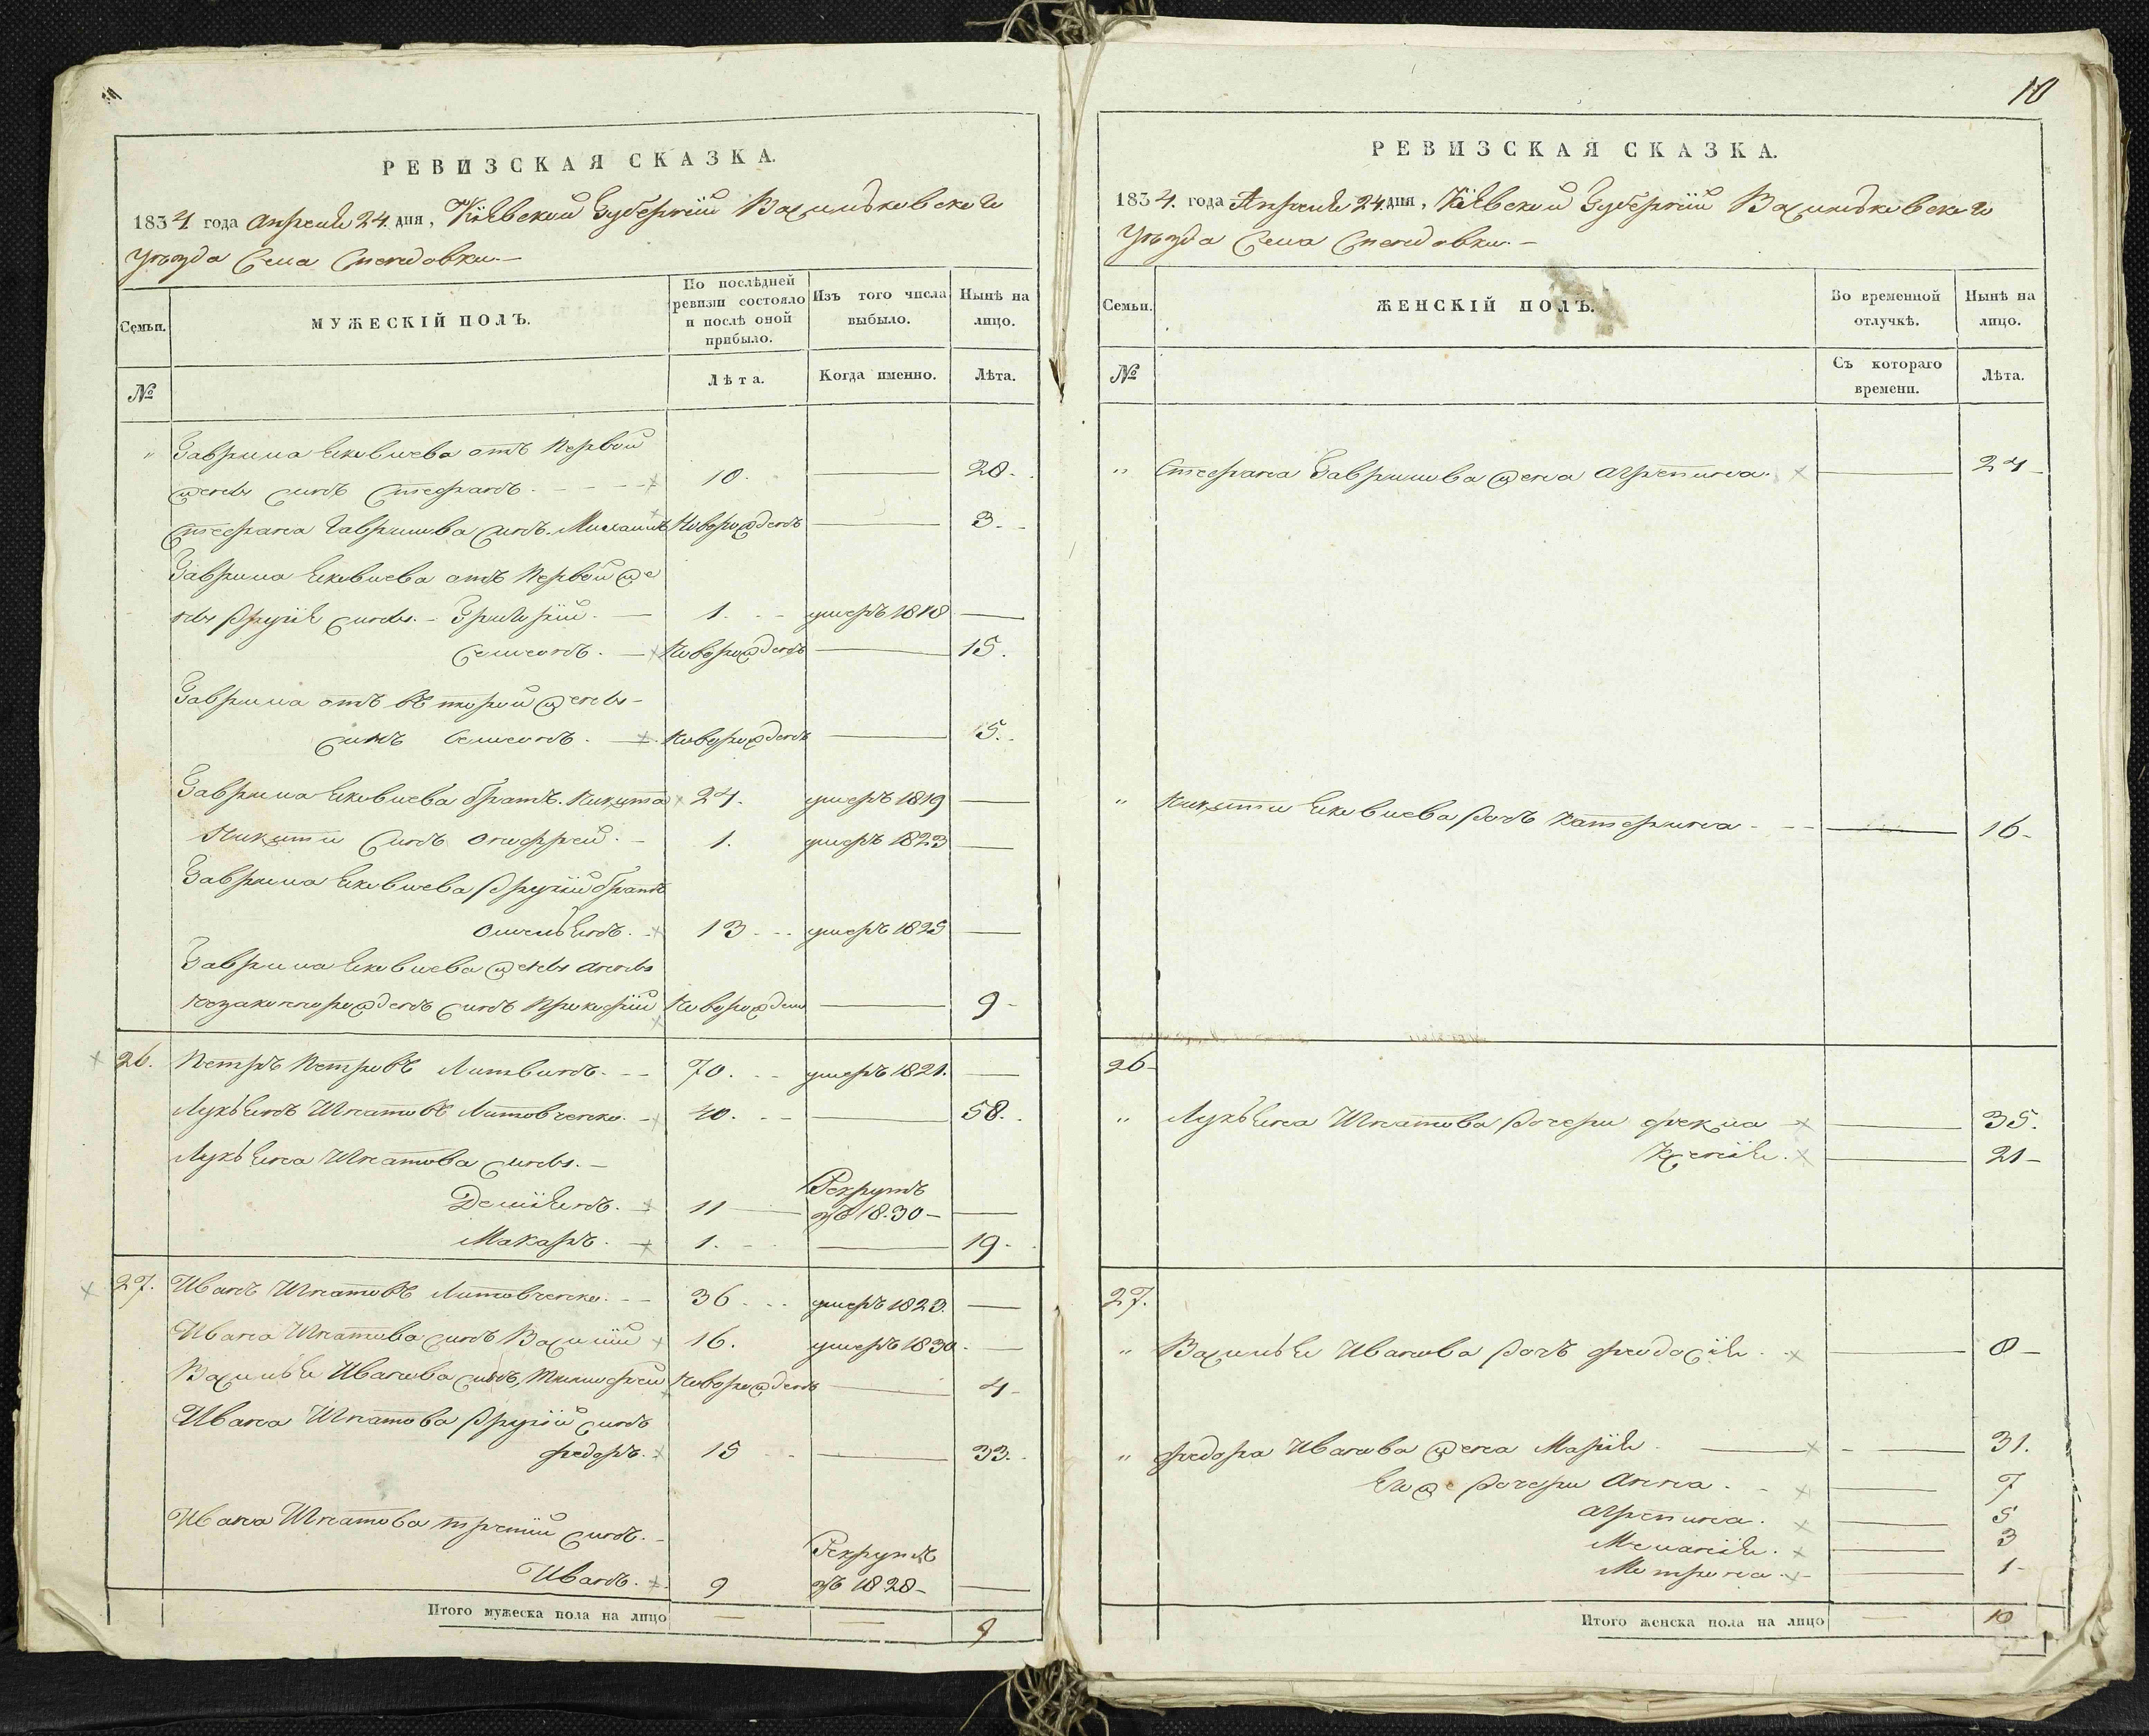 10
РЕВИЗСКАЯ СКАЗКА.
1834 года Апреля 24 дня, Кіевской Губерніи Васильковского
Уѣзда Села
Семьи.
МУЖЕСКІЙ ПОЛЪ.
По послѣдней ревизіи состояло и послѣ оной прибыло.
Изъ того числа выбыло.
Нынѣ на лицо.
№
Лѣта.
Когда именно.
Лѣта.
" Гаврила Яковлева отъ первой
жены сынъ Стефанъ. 10. — 28.
Стефана Гаврилова сынъ Михаилъ Новорожденъ — 3.
Гаврила Яковлева отъ первой же
ны другія сыны. Григорій. — 1. умеръ 1818 —
Семенъ. — Новорожденъ — 15.
Гаврила отъ второй жены
сынъ Семенъ. — Новорожденъ — 5.
Гаврила Яковлева братъ Никита 24. умеръ 1819 —
Никиты сынъ Онифрей. 1. умеръ 1823 —
Гаврила Яковлева другій братъ
Омельянъ. 13 умеръ 1825 —
Гаврила Яковлева жены Анны
незаконнорожденъ сынъ Прокофій Новорожден — 9
26. Петръ Петровъ Литвинъ. 70. умеръ 1821. —
Лукьянъ Игнатовъ Литовченко. 40. — 58.
Лукьяна Игнатова сыны.
Деміянъ. 11 Рекрутъ въ 1830 —
Макаръ. 1. — 19.
27. Иванъ Игнатовъ Литовченко. 36 умеръ 1823. —
Ивана Игнатова сынъ Василій 16. умеръ 1830. —
Василья Иванова сынъ Тимофей Новорожденъ — 4
Ивана Игнатова другій сынъ
Федоръ. 15 — 33.
Ивана Игнатова третій сынъ.
Иванъ. 9 Рекрутъ въ 1828 —
Итого мужеска пола на лицо — — 9
РЕВИЗСКАЯ СКАЗКА.
1834. года Апреля 24 дня, Кіевской Губерніи Васильковского
Уѣзда Села
Семьи.
ЖЕНСКІЙ ПОЛЪ.
Во временной отлучкѣ.
Нынѣ на лицо.
№
Съ котораго времени.
Лѣта.
" Стефана Гаврилова жена Агрепина. — 24
" Никиты Яковлева дочь Катерина — 16
26
" Лукьяна Игнатова дочери Фекла — 35.
Ксенія. — 21
27.
" Василья Иванова дочь Феодосія — 8
" Федора Иванова жена Марія — 31.
Его же дочери Анна. — 7
Агрепина. — 5
Меланія. — 3
Мотрона. — 1
Итого женска пола на лицо — 10